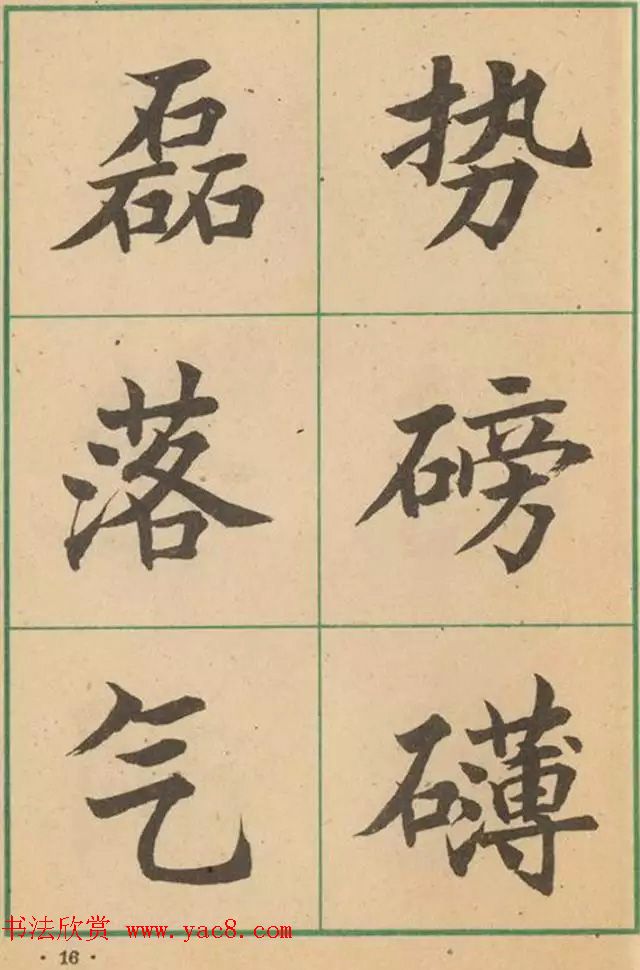 势磅礴
磊落气
书法欣赏 www.yac8.com
· 16 ·